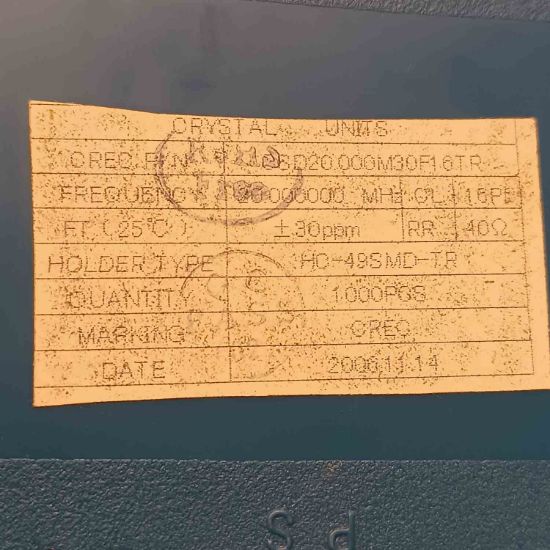 CRYSTAL UNITS
CREC P/N
FREQUENCY 20.000000 MHz CL 16PF
FT (25℃) ±30ppm RR 40Ω
HOLDER TYPE HC-49SMD-TR
QUANTITY 1000PCS
MARKING CREC
DATE 2006,11.14
Sd